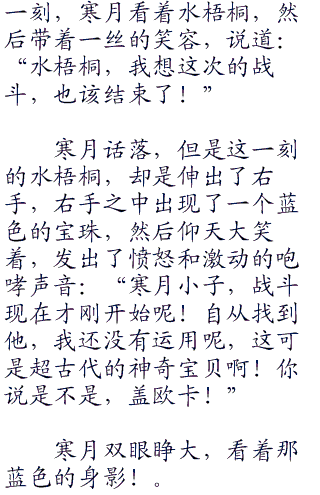 一刻，寒月看着水梧桐，然
后带着一丝的笑容，说道：
“水梧桐，我想这次的战
斗，也该结束了！”
寒月话落，但是这一刻
的水梧桐，却是伸出了右
手，右手之中出现了一个蓝
色的宝珠，然后仰天大笑
着，发出了愤怒和激动的咆
哮声音：“寒月小子，战斗
现在才刚开始呢！自从找到
他，我还没有运用呢，这可
是超古代的神奇宝贝啊！你
说是不是，盖欧卡！”
寒月双眼睁大，看着那
蓝色的身影！。